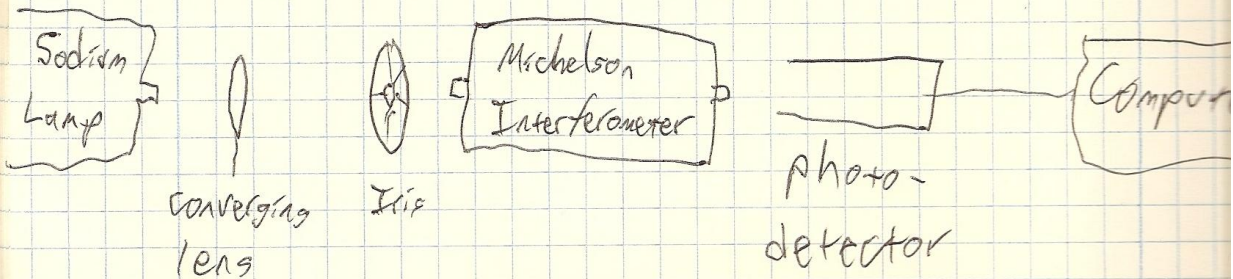 Sodium
Lamp
converging
lens
Iris
Michelson
Interferometer
photo-
detector
Comput